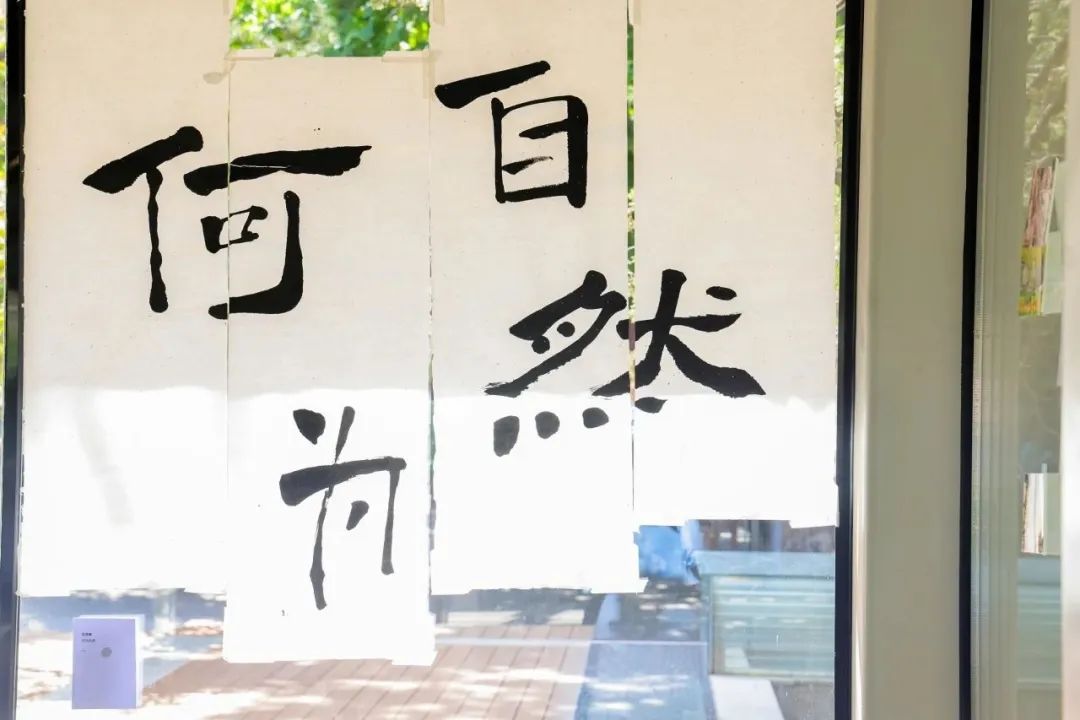 何为
自然